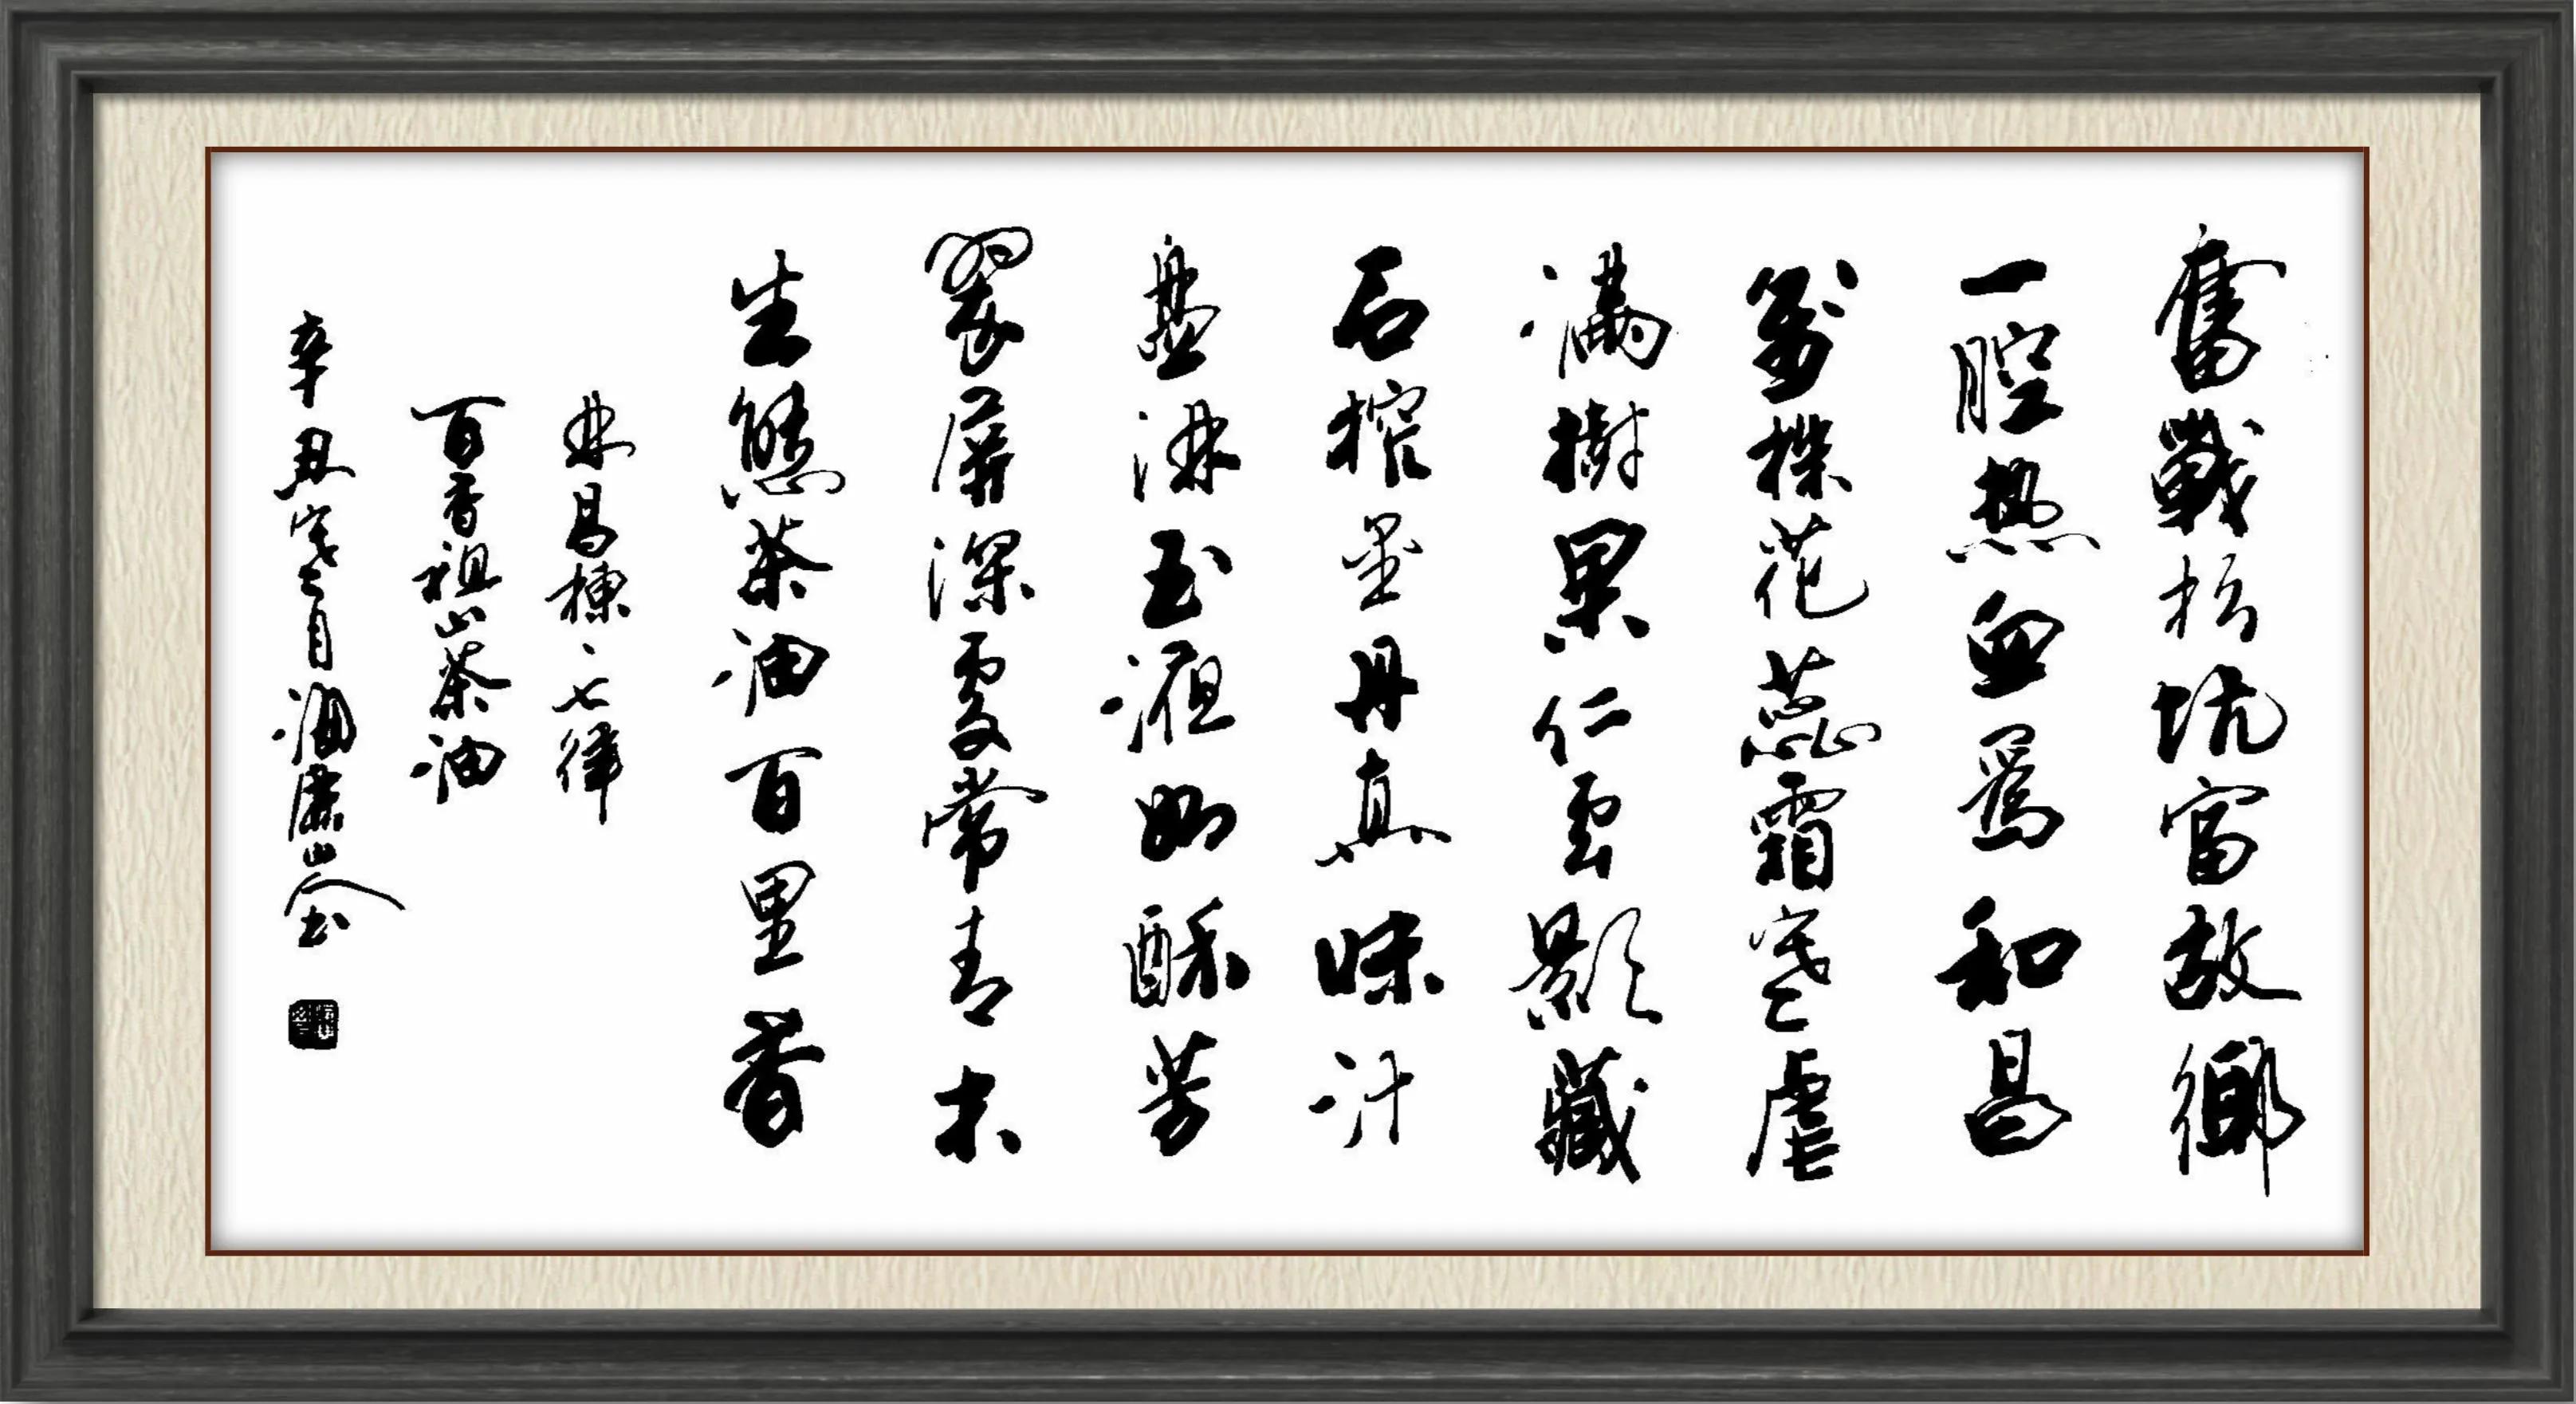 奮戰坑富故鄉
一腔熱血寫和昌
萬株花蕊霜寒虐
滿樹果仁雲影藏
石榨星丹真味汁
盤淋玉液如酥芳
翠屏深處常青木
生態茶油百里香
林昌棟、七律
百香祖山茶油
辛丑寒月書